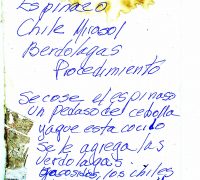 Espinaco
Chile Mirasol
Berdolagas
Procedimiento
Se cose el espinaso
un pedaso del cebolla
ya que esta cocido
Se le agrega las
verdolagas
los chiles